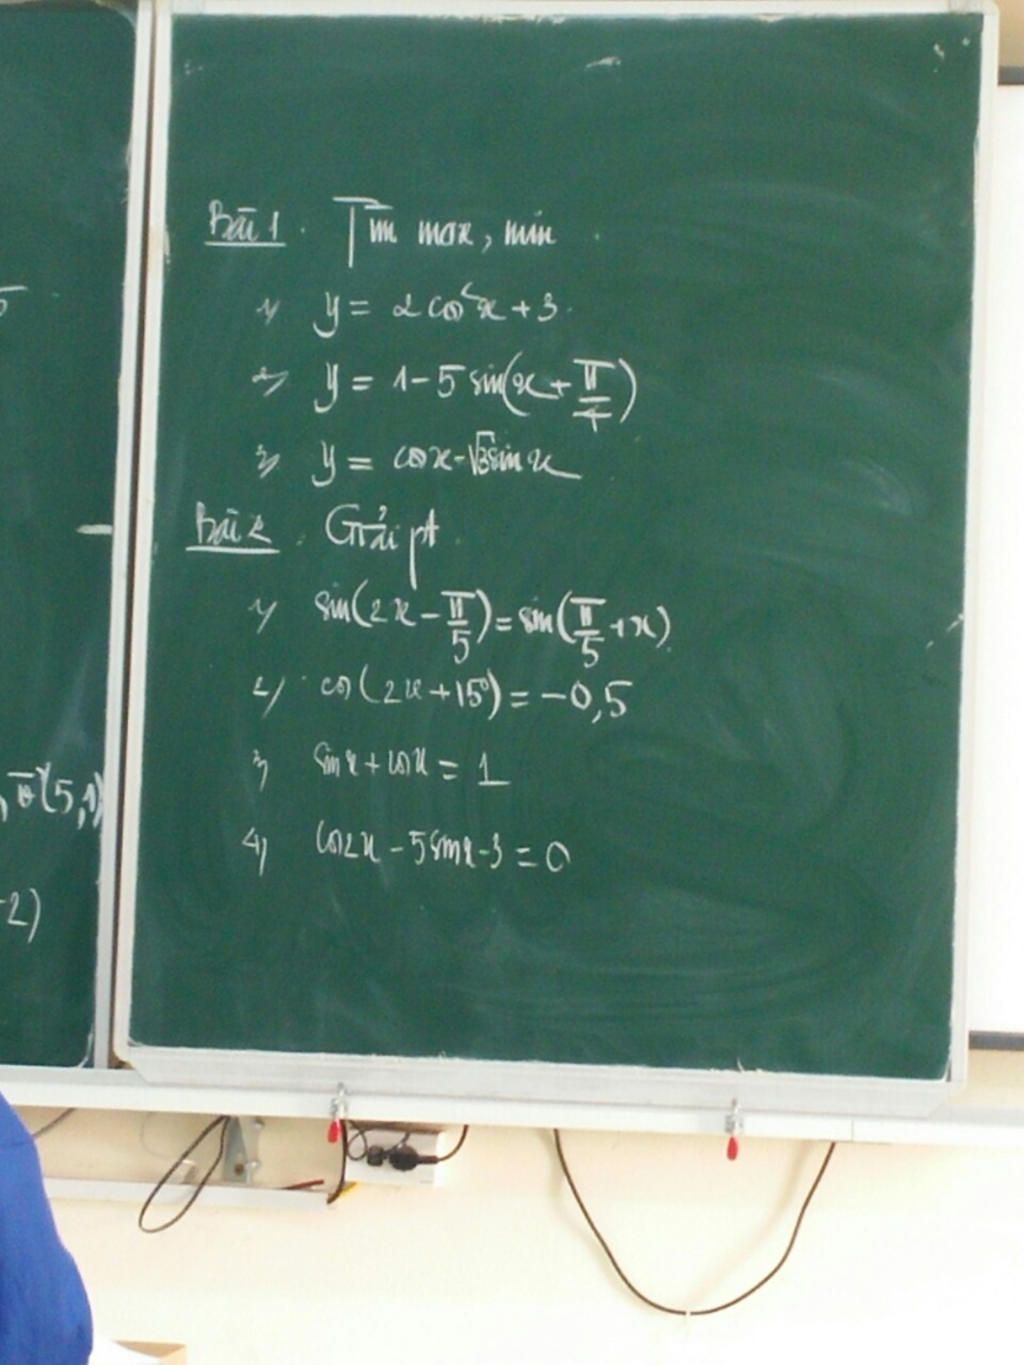 5
, v(5,1)
-2)
Bài 1. Tìm max, min
1) y = 2cos²x + 3.
2) y = 1 - 5 sin(x + π/4)
3) y = cosx - √3sinx
Bài 2. Giải pt
1) sin(2x - π/5) = sin(π/5 + x)
2) cos(2x + 15°) = -0,5
3) sinx + cosx = 1
4) cos2x - 5sinx - 3 = 0